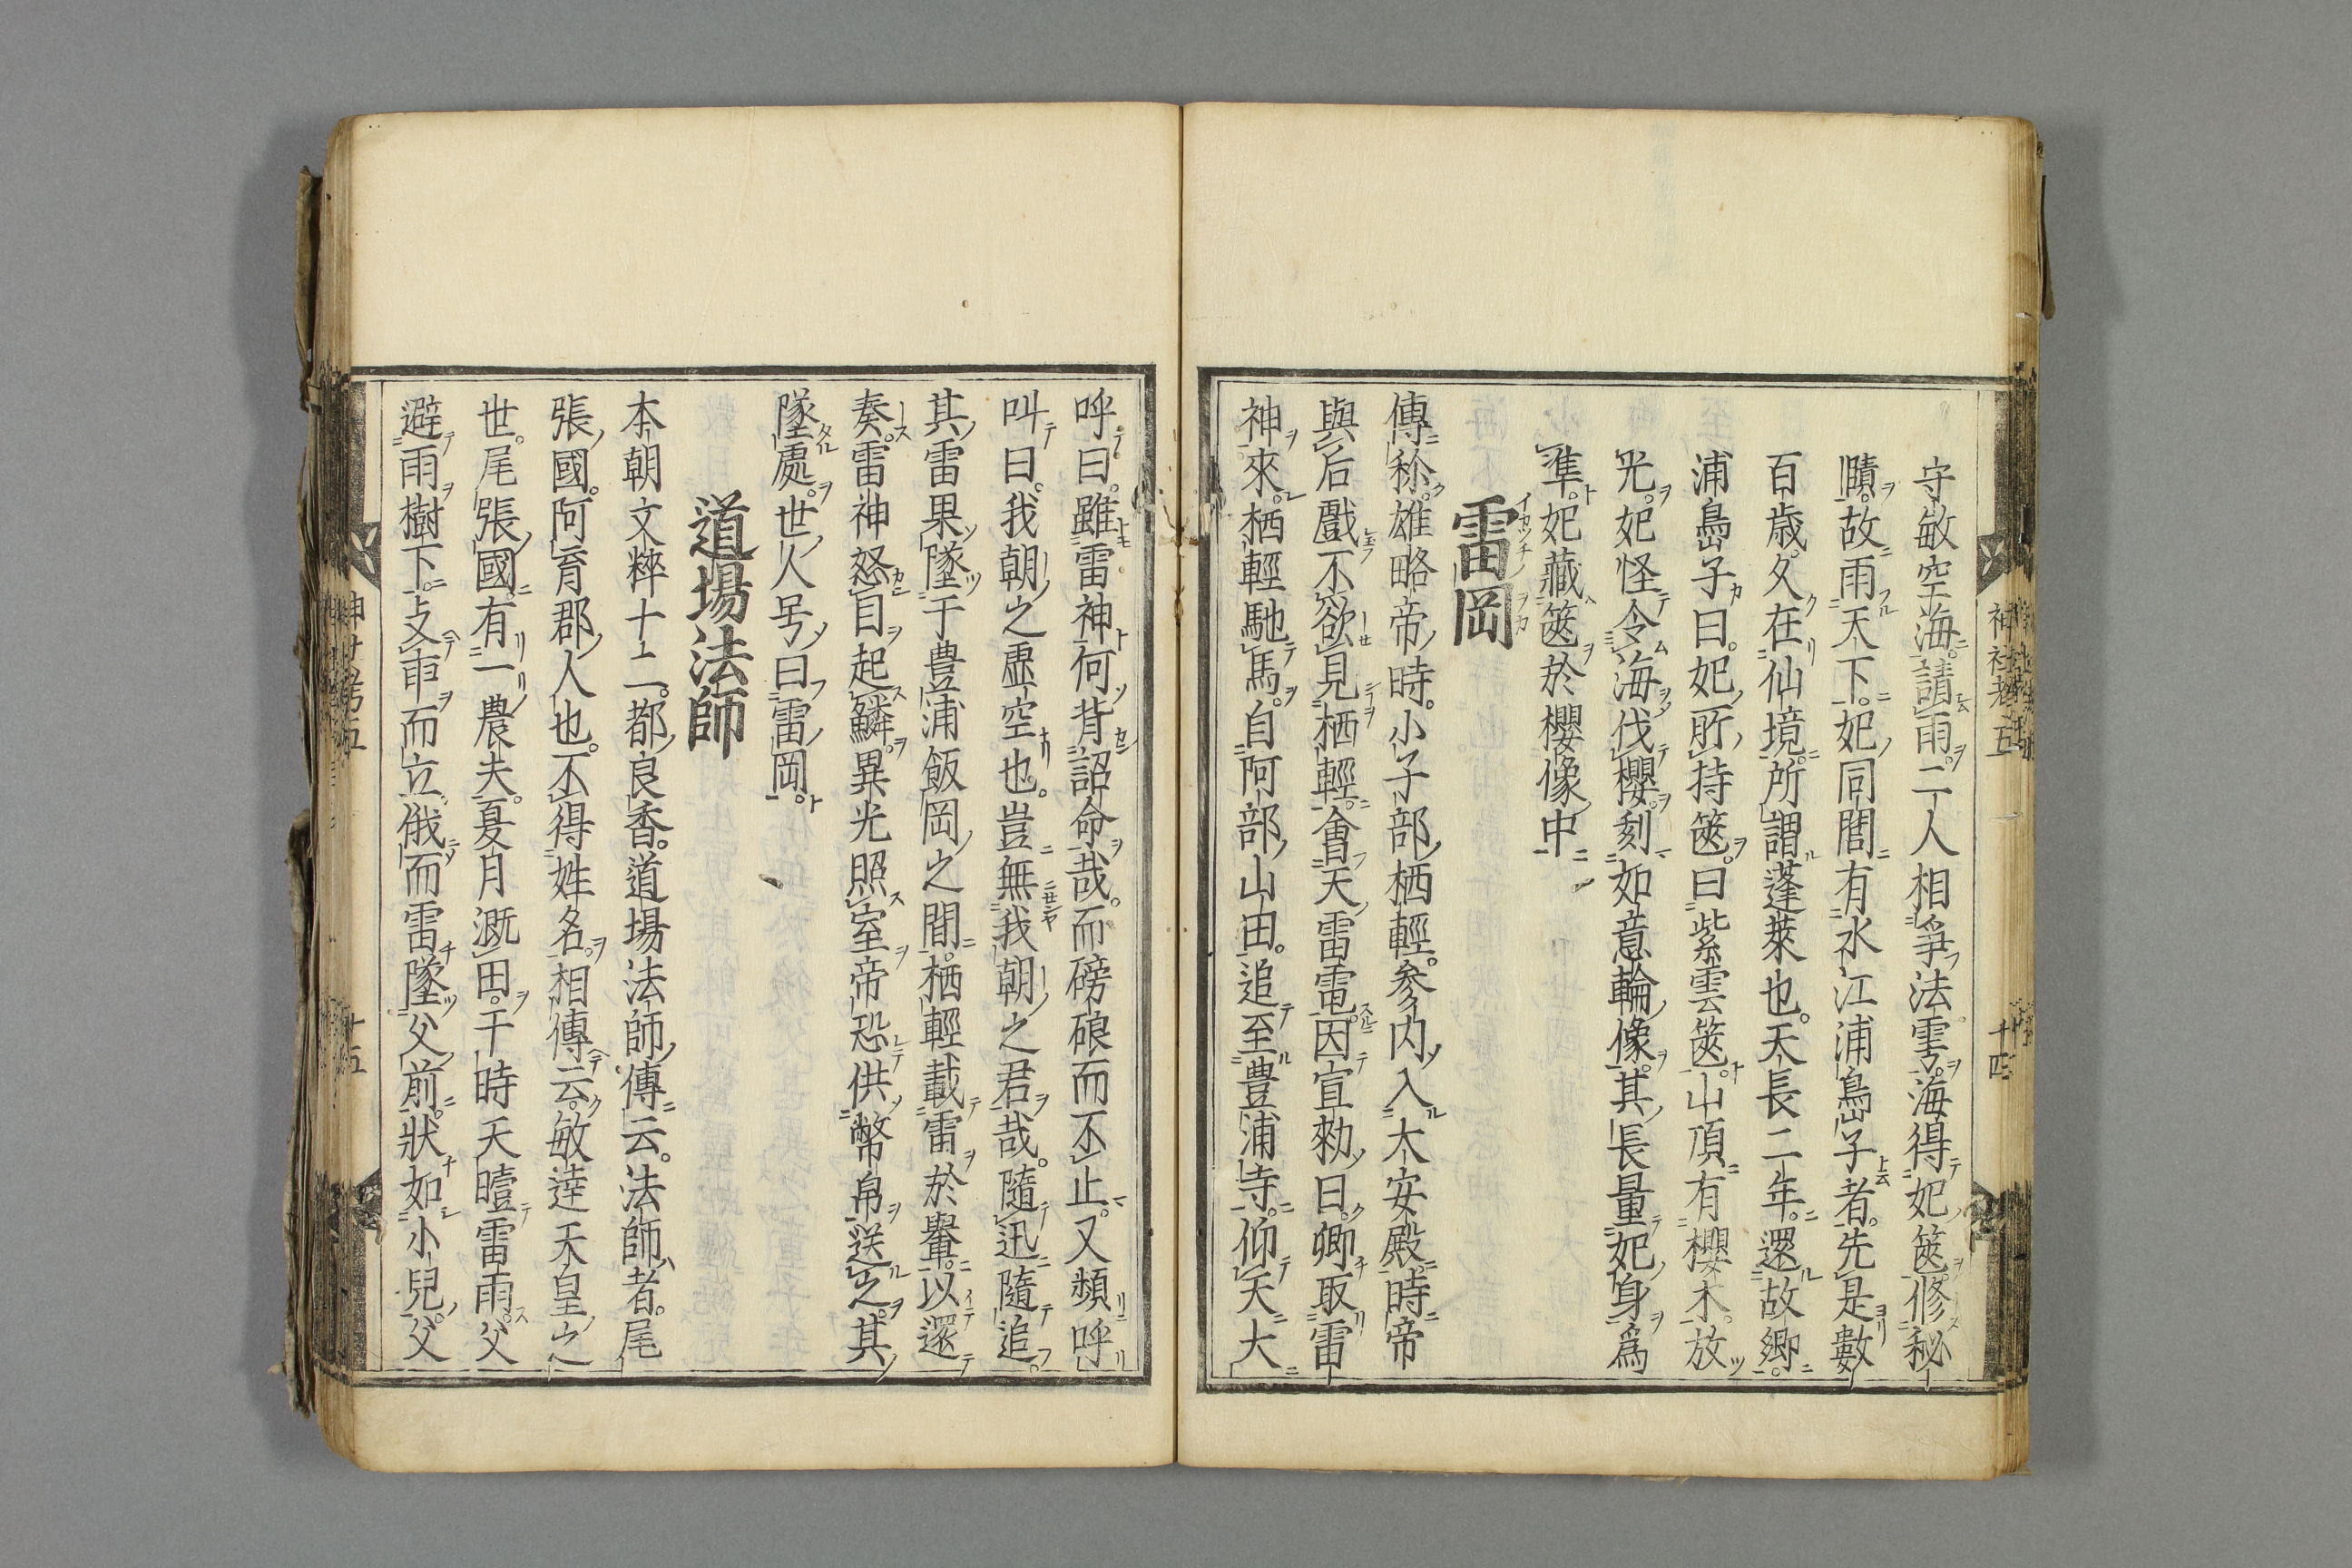 守敏空海請雨。二人相爭法雲。海得妃篋。修秘
賾。故雨天下。妃同閭有水江浦嶋子者。先是數
百歳。久在仙境。所謂蓬萊也。天長二年。還故郷。
浦嶋子曰。妃所持篋。曰紫雲篋。山頂有櫻木。放
光。妃怪令海伐櫻。刻如意輪像。其長量妃身爲
準。妃藏篋於櫻像中
雷岡
傳称。雄略帝時。小子部栖輕。参内入大安殿。時帝
與后戲不欲見栖輕。會天雷電。因宣勅曰。卿取雷
神來。栖輕馳馬。自阿部山田。追至豊浦寺。仰天大
呼曰。雖雷神何背詔命哉。而磅硠而不止。又頻呼
叫曰。我朝之虚空也。豈無我朝之君哉。隨迅隨追。
其雷果墜于豊浦飯岡之間。栖輕載雷於轝。以還
奏。雷神怒目起鱗。異光照室。帝恐供幣帛送之。其
墜處。世人号曰雷岡。
道場法師
本朝文粹十二。都良香。道場法師傳云。法師者。尾
張國。阿育郡人也。不得姓名。相傳云。敏達天皇之
世。尾張國有一農夫。夏月漑田。于時天曀雷雨。父
避雨樹下。支雨而立。俄而雷墜父前。狀如小兒。父
神社考五 十四
十五